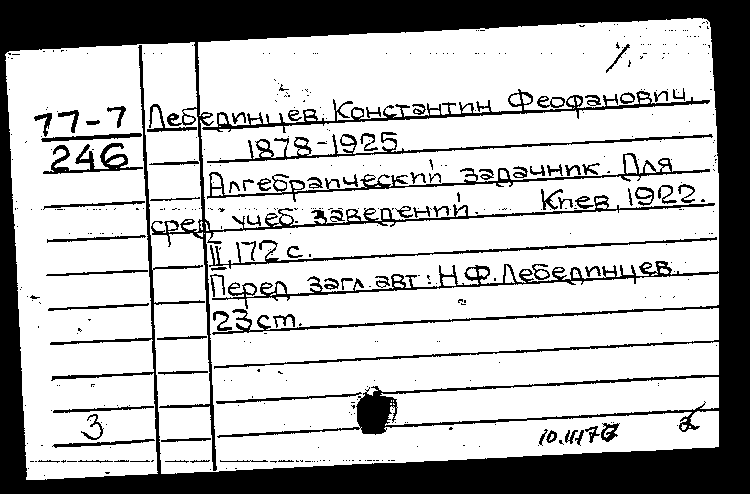 77-7
246
Лебединцев, Константин Феофанович,
1878-1925.
Алгебраический задачник. Для
сред. учеб. заведений. Киев, 1922.
II, 172 с.
Перед загл. авт: Н.Ф. Лебединцев.
23 cm.
3